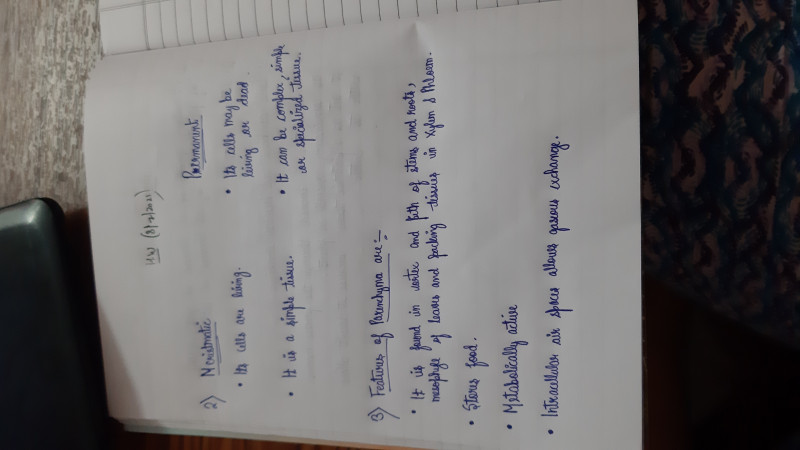 HW (8/7/2021)
2) Meristmatic
Permanant
• Its cells are living.
• Its cells may be
living or dead
• It is a simple tissue.
• It can be complex, simple
or specialized tissue.
3) Features of Parenchyma are:-
• It is found in cortex and pith of stems and roots,
mesophyll of leaves and packing tissues in Xylem & Phloem.
• Stores food.
• Metabolically active
• Intracellular air spaces allows gaseous exchange.